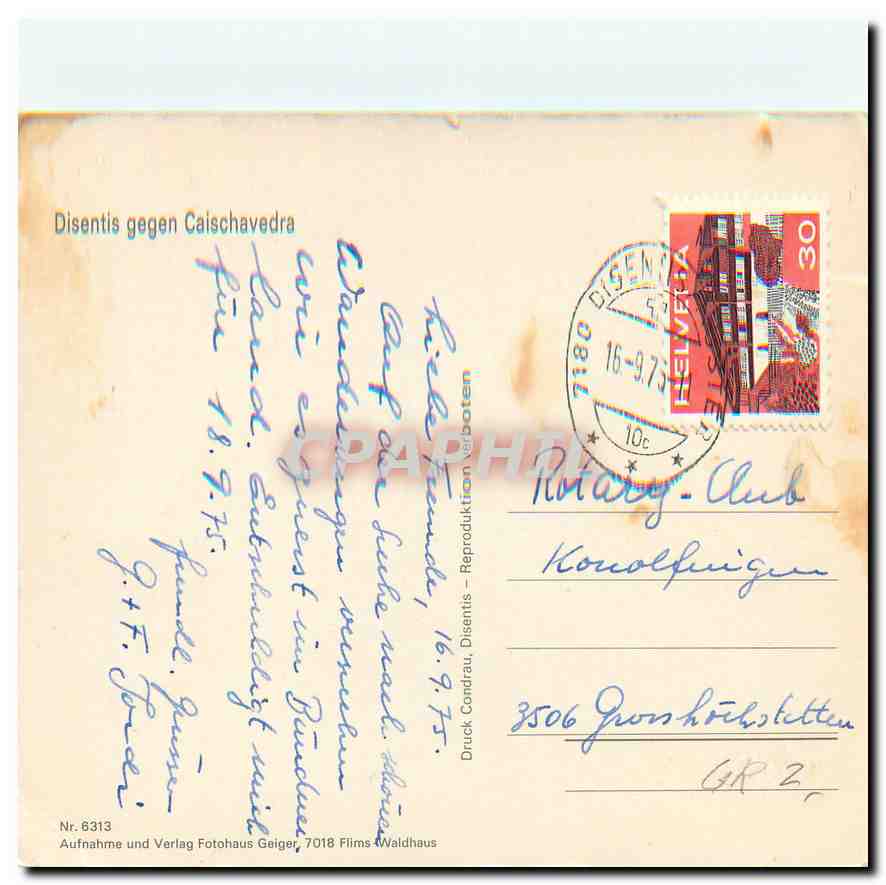 Disentis gegen Caischavedra
Liebe Freunde, 16.9.75.
Auf der Suche nach schönen
Wanderungen versuchen
wir es zuerst im Bündner
land. Entschuldigt mich
für 18.9.75.
freundl. Grüsse
G.+F. Jordi
Druck Condrau, Disentis – Reproduktion verboten
7180 DISENTIS
16-9.75
10c
HELVETIA
30
Rotary-Club
Konolfingen
3506 Grosshöchstetten
GR 2
Nr. 6313
Aufnahme und Verlag Fotohaus Geiger, 7018 Flims-Waldhaus
CPAPHIL